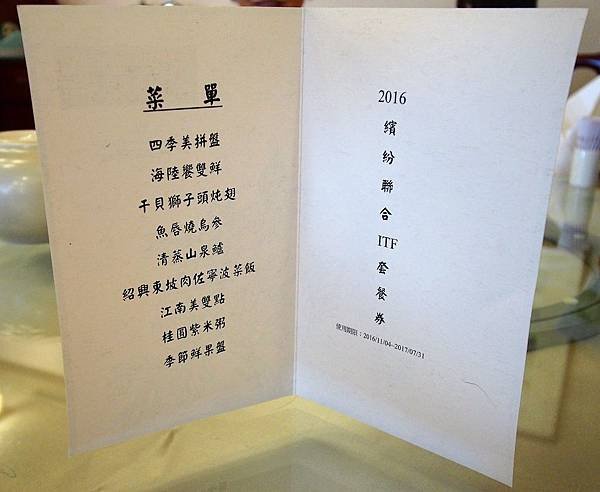 菜 單
四季美拼盤
海陸饗雙鮮
干貝獅子頭炖翅
魚唇燒烏參
清蒸山泉鱸
紹興東坡肉佐寧波菜飯
江南美雙點
桂圓紫米粥
季節鮮果盤
2016
繽
紛
聯
合
ITF
套
餐
券
使用期限：2016/11/04~2017/07/31